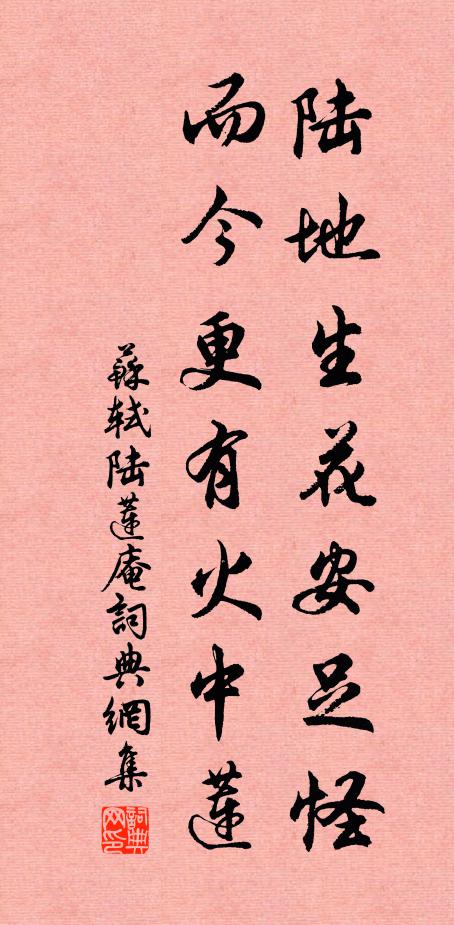 陆地生花安足怪
而今更有火中蓮
蘇轼陆蓮庵詞典網集
詞典网印